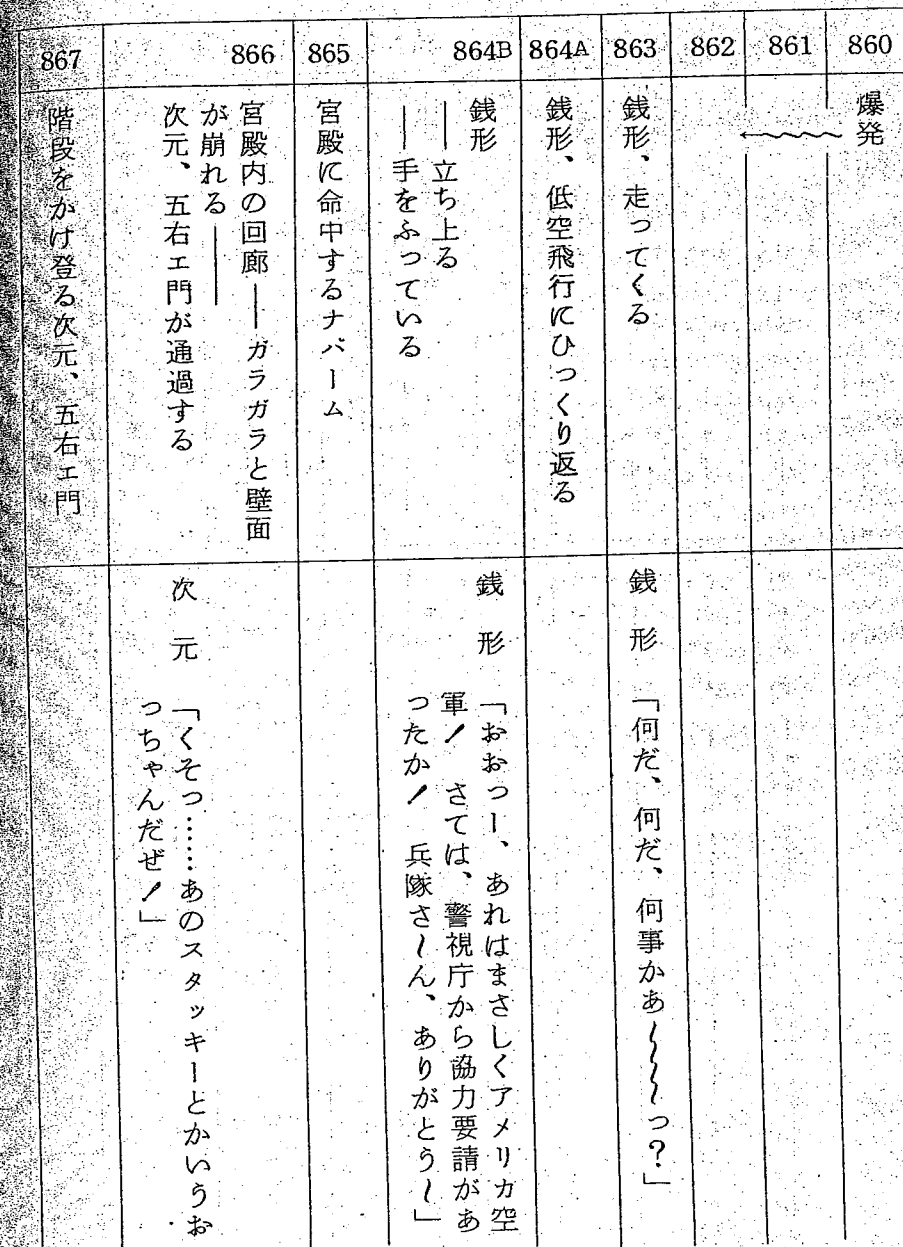 860
爆発
861
862
863
銭形、走ってくる
銭形「何だ、何だ、何事かあ〜〜〜っ?」
864A
銭形、低空飛行にひっくり返る
864B
銭形
──立ち上る
──手をふっている
銭形「おおっー、あれはまさしくアメリカ空
軍! さては、警視庁から協力要請があ
ったか! 兵隊さ〜ん、ありがとう〜」
865
宮殿に命中するナパーム
866
宮殿内の回廊──ガラガラと壁面
が崩れる──
次元、五右エ門が通過する
次元「くそっ……あのスタッキーとかいうお
っちゃんだぜ!」
867
階段をかけ登る次元、五右エ門